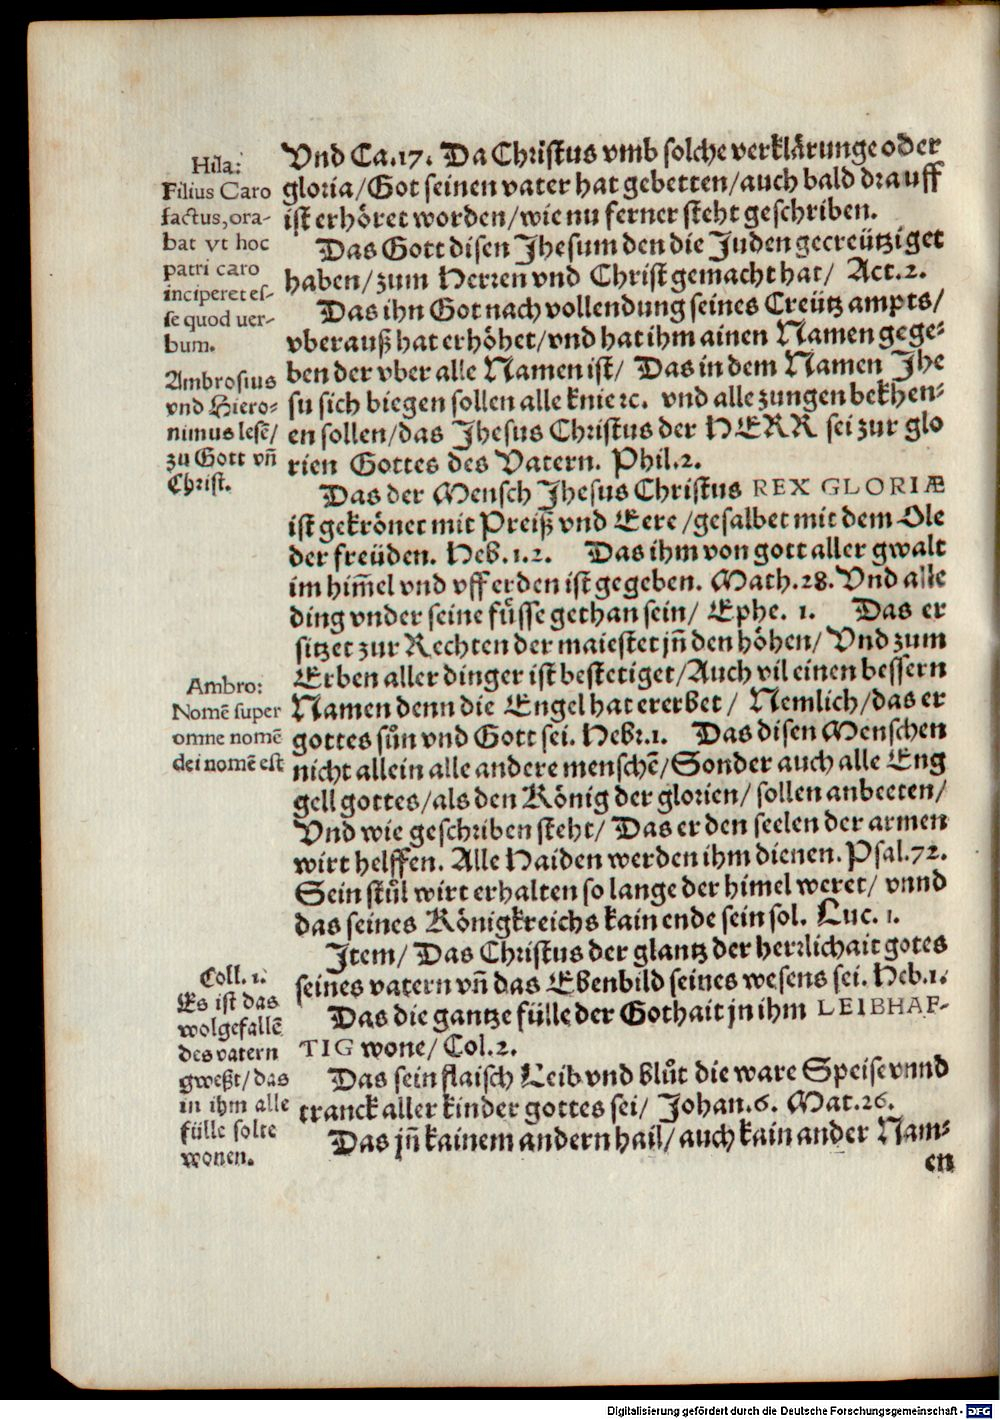 Vnd Ca.17. Da Christus vmb solche verklärunge oder
gloria/Got seinen vater hat gebetten/auch bald drauff
ist erhöret worden/wie nu ferner steht geschriben.
Das Gott disen Jhesum den die Juden gecreütziget
haben/zum Herren vnd Christ gemacht hat/ Act.2.
Das ihn Got nach vollendung seines Creütz ampts/
vberauß hat erhöhet/vnd hat ihm ainen Namen gege-
ben der vber alle Namen ist/ Das in dem Namen Jhe
su sich biegen sollen alle knie ꝛc. vnd alle zungen bekhen-
en sollen/das Jhesus Christus der HERR sei zur glo
rien Gottes des Vatern. Phil.2.
Das der Mensch Jhesus Christus REX GLORIÆ
ist gekrönet mit Preiß vnd Eere/gesalbet mit dem Ole
der freüden. Heb.1.2. Das ihm von gott aller gwalt
im him̄el vnd vff erden ist gegeben. Math.28. Vnd alle
ding vnder seine füsse gethan sein/ Ephe. 1. Das er
sitzet zur Rechten der maiestet jn̄ den höhen/ Vnd zum
Erben aller dinger ist bestetiget/Auch vil einen bessern
Namen denn die Engel hat ererbet/ Nemlich/das er
gottes sůn vnd Gott sei. Hebr.1. Das disen Menschen
nicht allein alle andere menschē/Sonder auch alle Eng
gell gottes/als den König der glorien/ sollen anbeeten/
Vnd wie geschriben steht/ Das er den seelen der armen
wirt helffen. Alle Haiden werden ihm dienen. Psal.72.
Sein stůl wirt erhalten so lange der himel weret/ vnnd
das seines Königkreichs kain ende sein sol. Luc. 1.
Item/ Das Christus der glantz der herrlichait gotes
seines vatern vn̄ das Ebenbild seines wesens sei. Heb.1.
Das die gantze fülle der Gothait jn ihm LEIBHAF-
TIG wone/ Col.2.
Das sein flaisch Leib vnd blůt die ware Speise vnnd
tranck aller kinder gottes sei/ Johan.6. Mat.26.
Das jn̄ kainem andern hail/auch kain ander Nam-
en
Hila:
Filius Caro
factus, ora-
bat vt hoc
patri caro
inciperet es-
se quod uer-
bum.
Ambrosius
vnd Hiero-
nimus lesē/
zu Gott vn̄
Christ.
Ambro:
Nomē super
omne nomē
dei nomē est
Coll. 1.
Es ist das
wolgefallē
des vatern
gweßt/das
in ihm alle
fülle solte
wonen.
Digitalisierung gefördert durch die Deutsche Forschungsgemeinschaft - DFG